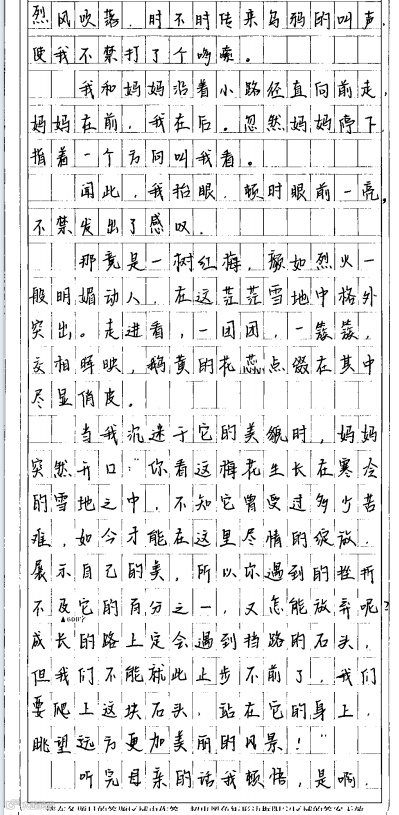 烈风吹荡,时不时传来乌鸦的叫声,
使我不禁打了个哆嗦。
我和妈妈沿着小路径直向前走,
妈妈在前,我在后。忽然妈妈停下,
指着一个方向叫我看。
闻此,我抬眼,顿时眼前一亮,
不禁发出了感叹.
那竟是一树红梅,宛如烈火一
般明媚动人,在这茫茫雪地中格外
突出。走进看,一团团,一簇簇,
交相晖映,鹅黄的花蕊点缀在其中
尽显俏皮。
当我沉迷于它的美貌时,妈妈
突然开口:"你看这梅花生长在寒冷
的雪地之中,不知它曾受过多少苦
难,如今才能在这里尽情的绽放.
展示自己的美,所以你遇到的挫折
不及它的百分之一,又怎能放弃呢?
▲600字
成长的路上定会遇到挡路的石头,
但我们不能就此止步不前了,我们
要爬上这块石头,站在它的身上,
眺望远方更加美丽的风景!"
听完母亲的话我顿悟,是啊,